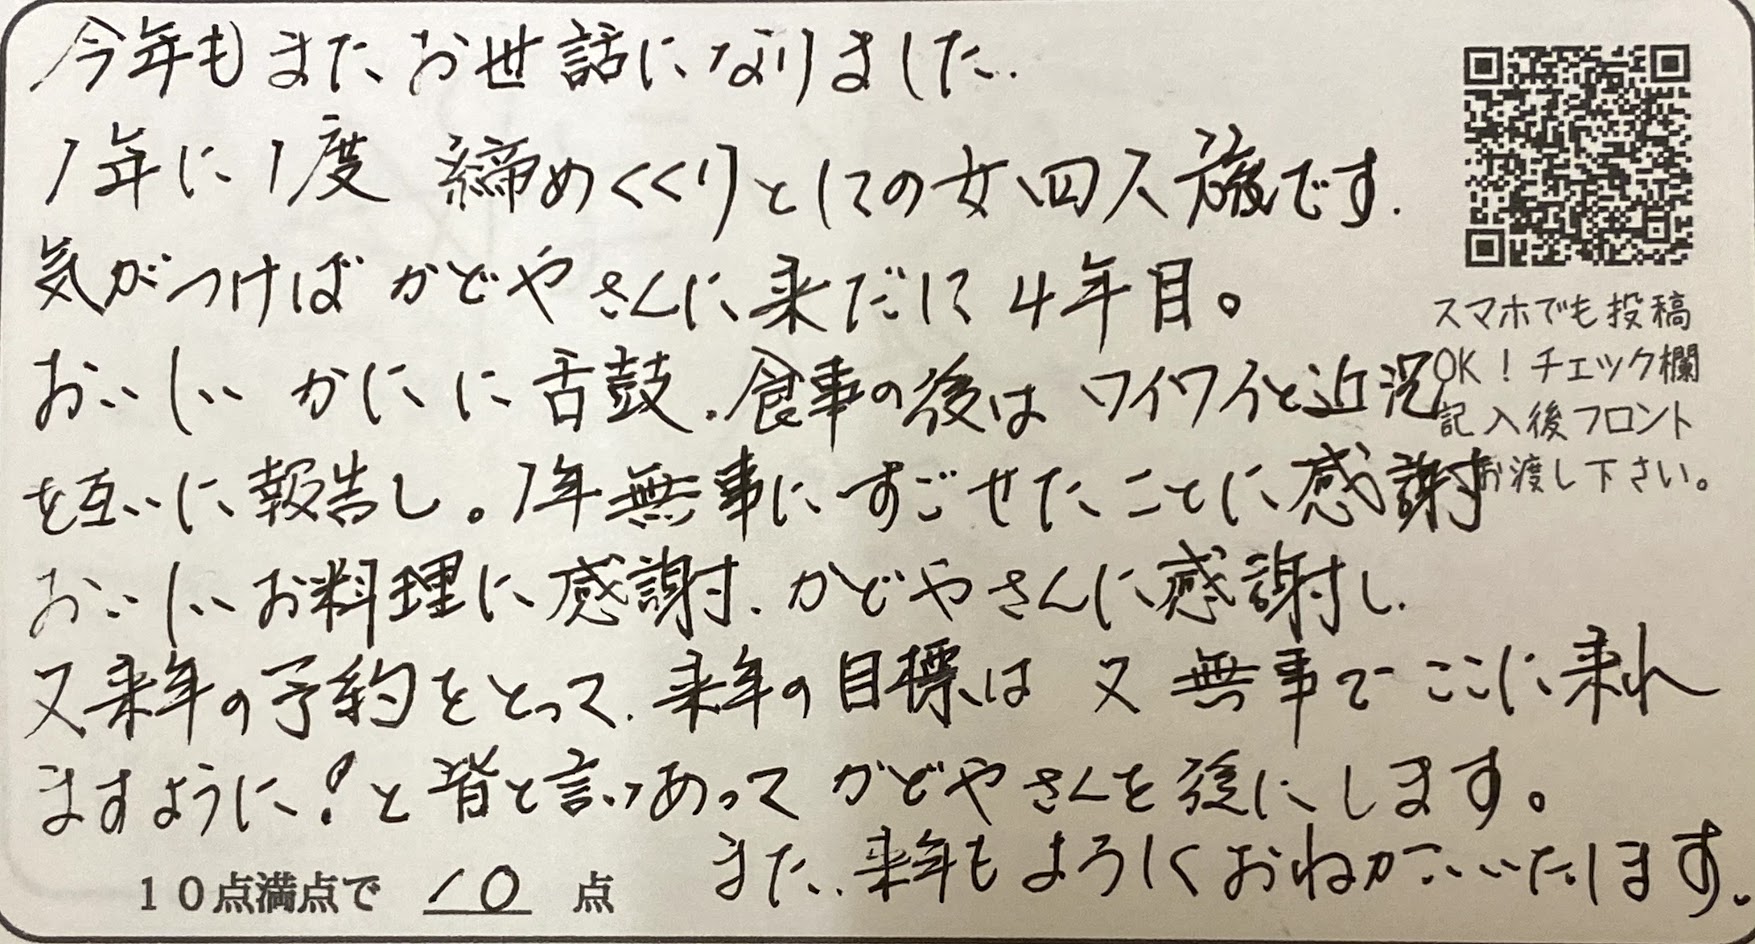 今年もまたお世話になりました.
1年に1度 締めくくりとしての女四人旅です.
気がつけばかどやさんに来だして4年目。
おいしいかにに舌鼓.食事の後はワイワイと近況
を互いに報告し。1年無事にすごせたことに感謝
おいしいお料理に感謝、かどやさんに感謝し.
又来年の予約をとって、来年の目標は 又 無事でここに来れ
ますように!と皆と言いあって かどやさんを後にします。
また、来年もよろしくおねがいいたします。
10点満点で 10 点
スマホでも投稿
OK!チェック欄
記入後フロント
お渡し下さい。